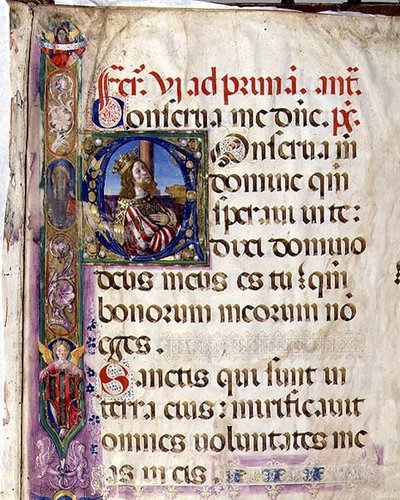 Fer. VI ad prima. ant.
Conserua me dñe. ps.
Conserua me
domine qm̄
speraui in te:
dixi domino
deus meus es tu: qm̄
bonorum meorum nō
eges.
Sanctis qui sunt in
terra eius: mirificauit
omnes uoluntates me
as in eis.